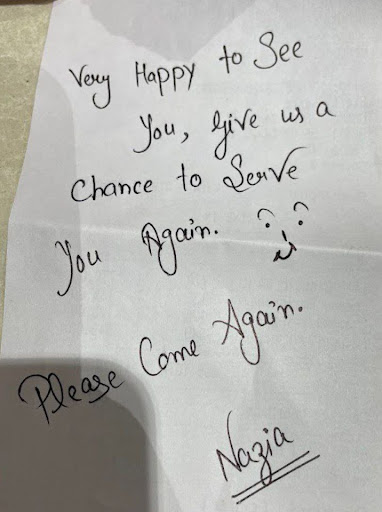 Very Happy to See
You, give us a
Chance to Serve
You Again.
Please Come Again.
Nazia